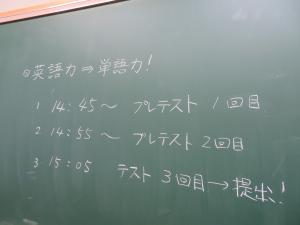 ◎英語力⇒単語力!
1 14:45~ プレテスト 1回目
2 14:55~ プレテスト 2回目
3 15:05 テスト 3回目→提出!